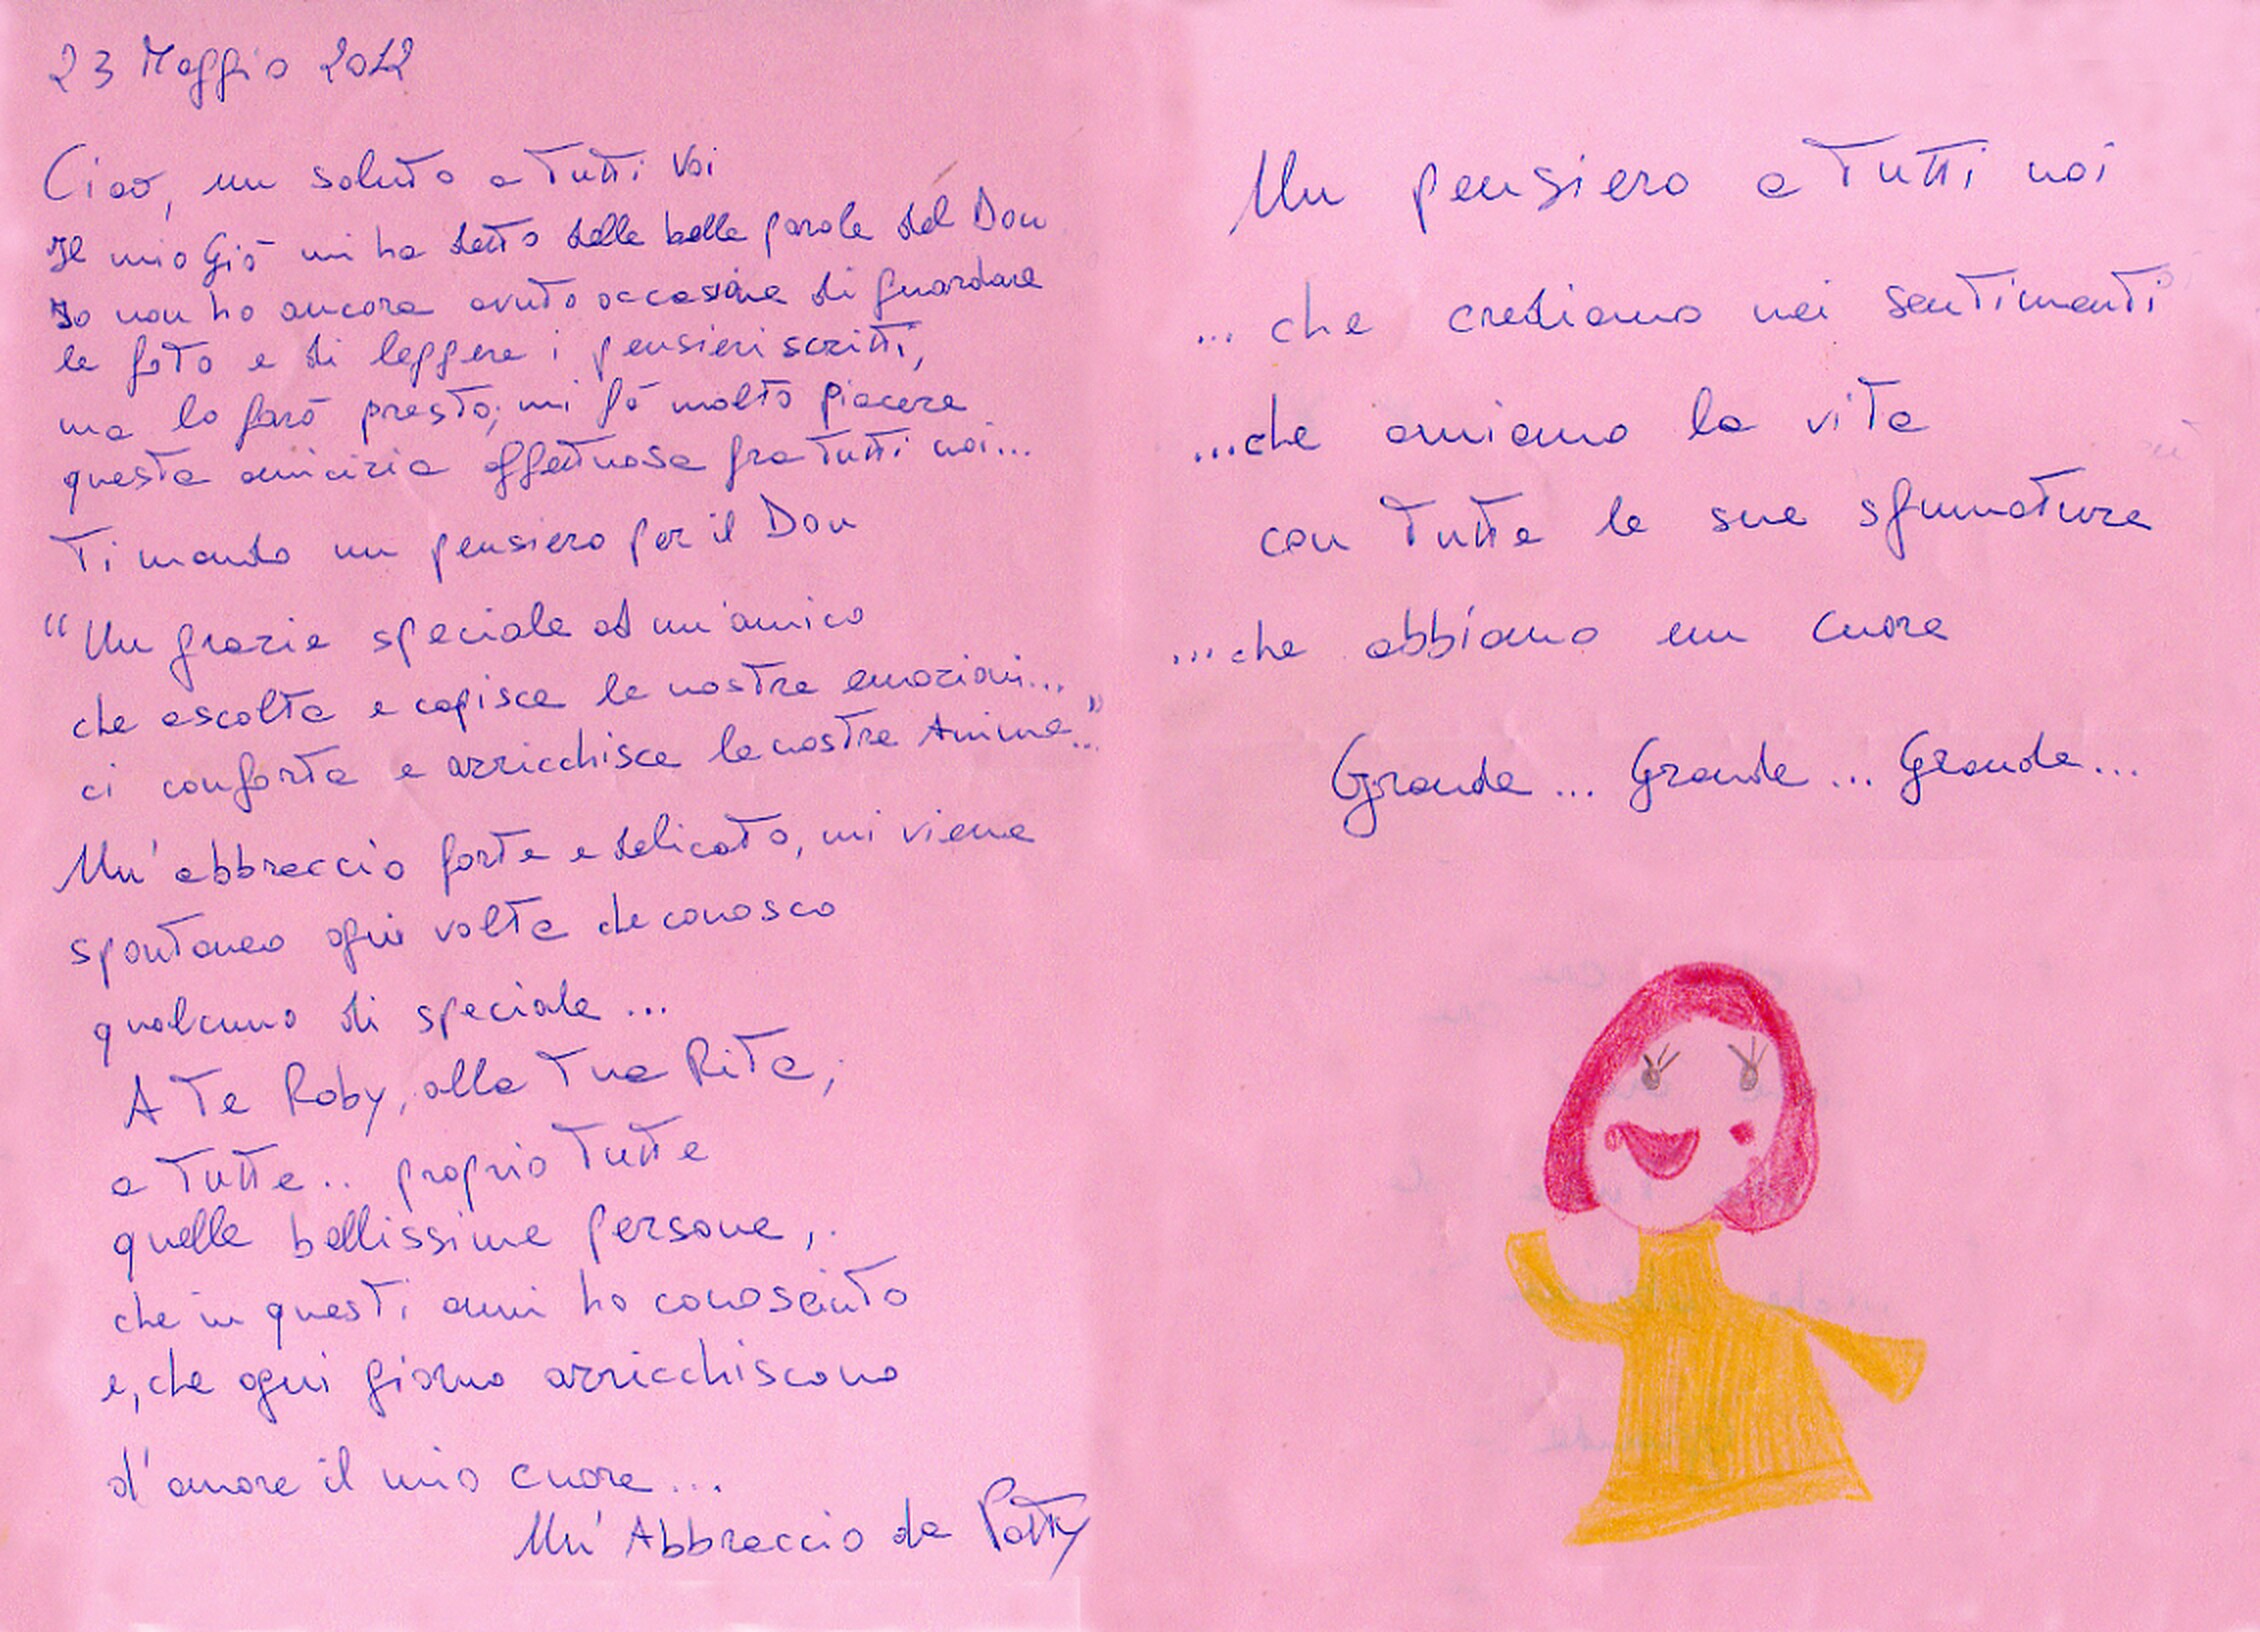 23 Maggio 2012
Ciao, un saluto a tutti voi
Il mio Giò mi ha detto delle belle parole del Don
Io non ho ancora avuto occasione di guardare
le foto e di leggere i pensieri scritti,
ma lo farò presto, mi fà molto piacere
questa amicizia affettuosa fra tutti noi...
Ti mando un pensiero per il Don
"Un grazie speciale ad un'amico
che ascolta e capisce le nostre emozioni...
ci conforta e arricchisce le nostre Anime..."
Un'abbraccio forte e delicato, mi viene
spontaneo ogni volta che conosco
qualcuno di speciale...
A te Roby, alla tua Rita,
a tutte.. proprio tutte
quelle bellissime persone,
che in questi anni ho conosciuto
e, che ogni giorno arricchiscono
d'amore il mio cuore...
Un'Abbraccio da Patty
Un pensiero a tutti noi
... che crediamo nei sentimenti
...che amiamo la vita
con tutte le sue sfumature
...che abbiamo un cuore
Grande... Grande... Grande...